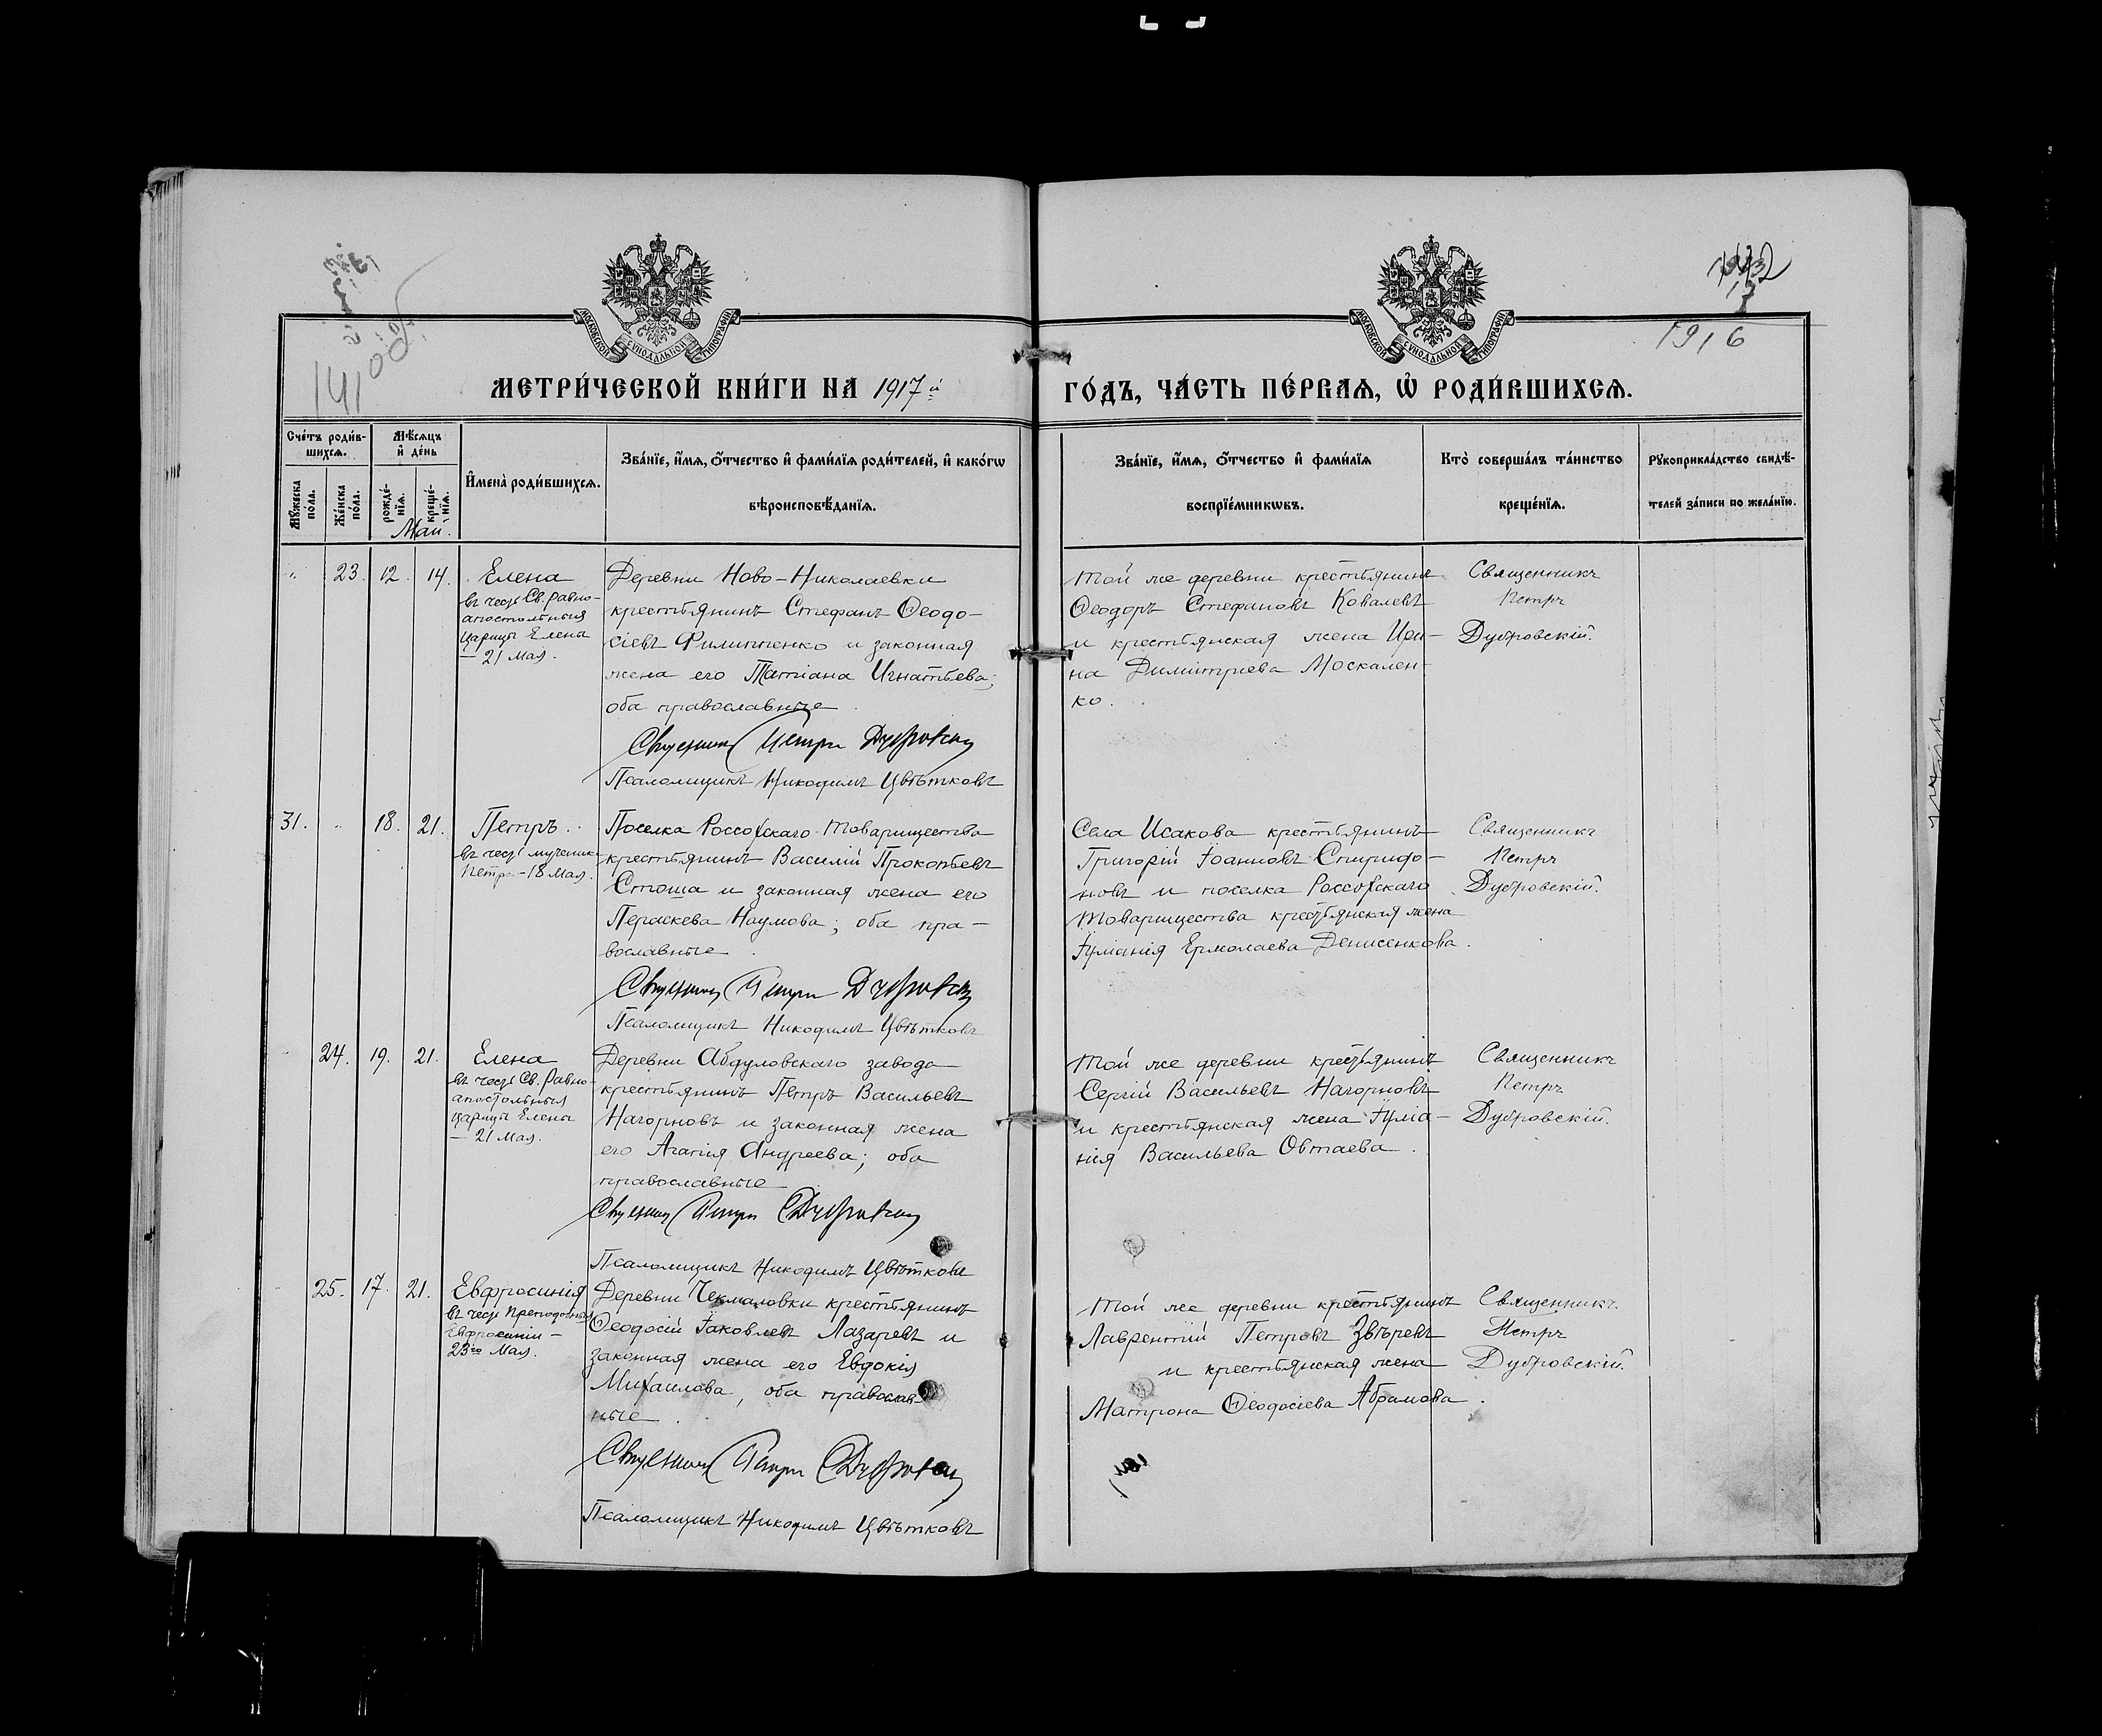 1916
МОСКОВСКОЙ СУНОДАЛЬНОЙ ТИПОГРАФІИ
МОСКОВСКОЙ СУНОДАЛЬНОЙ ТИПОГРАФІИ
МЕТРИ́ЧЕСКОЙ КНИ́ГИ НА 1917 й
ГО́ДЪ, ЧА́СТЬ ПЕ́РВАЯ, Ѡ РОДИ́ВШИХСЯ.
Сче́тъ роди́в-
шихся.
Мѣ́сяцъ
и де́нь
Му́жеска
по́ла.
Же́нска
по́ла.
рожде́-
нїя.
креще́-
нїя.
Имена̀ роди́вшихся.
Зва́нїе, и́мя, о́тчество и фами́лїя роди́телей, и како́гѡ
вѣроисповѣ́данїя.
Зва́нїе, и́мя, о́тчество и фами́лїя
воспрїе́мникѡвъ.
Кто̀ соверша́лъ та́инство
креще́нїя.
Рукоприкла́дство свидѣ́-
телей за́писи по жела́нїю.
Май.
23. 12. 14.
Елена
въ честь Св. равно-
апостольныя
Царицы Елены
— 21 Мая.
Деревни Ново-Николаевки
крестьянинъ Стефанъ Ѳеодо-
сіевъ Филипченко и законная
жена его Татіана Игнатьева;
оба православные.
Священник Петръ Дубровскій
Псаломщикъ Никодимъ Цвѣтковъ
Той же деревни крестьянинъ
Ѳеодоръ Стефановъ Ковалевъ
и крестьянская жена Ири-
на Димитріева Москален-
ко.
Священникъ
Петръ
Дубровскій.
31. 18. 21.
Петръ.
въ честь мученик.
Петр. - 18 Мая.
Поселка Россохскаго Товарищества
крестьянинъ Василій Прокопьевъ
Стоша и законная жена его
Параскева Наумова; оба пра-
вославные.
Священник Петръ Дубровскій
Псаломщикъ Никодимъ Цвѣтковъ
Села Исакова крестьянинъ
Григорій Іоанновъ Спиридо-
новъ и поселка Россохскаго
Товарищества крестьянская жена
Іуліанія Ермолаева Денисенкова.
Священникъ
Петръ
Дубровскій.
24. 19. 21.
Елена
въ честь Св. Равно-
апостольныя
царицы Елены
— 21 Мая.
Деревни Абдуловскаго завода
крестьянинъ Петръ Васильевъ
Нагорновъ и законная жена
его Агапія Андреева; оба
православные
Священник Петръ Дубровскій
Псаломщикъ Никодимъ Цвѣтковъ
Той же деревни крестьянинъ
Сергій Васильевъ Нагорновъ
и крестьянская жена Іуліа-
нія Васильева Овтаева.
Священникъ
Петръ
Дубровскій.
25. 17. 21.
Евфросинія
въ честь Преподобныя
Евфросиніи -
23го Мая.
Деревни Чекмаловки крестьянинъ
Ѳеодосій Іаковлевъ Лазаревъ и
законная жена его Евдокія
Михаилова, оба православ-
ные.
Священник Петръ Дубровскій
Псаломщикъ Никодимъ Цвѣтковъ
Той же деревни крестьянинъ
Лаврентій Петровъ Звѣревъ
и крестьянская жена
Матрона Ѳеодосіева Абрамова.
Священникъ.
Петръ
Дубровскій.